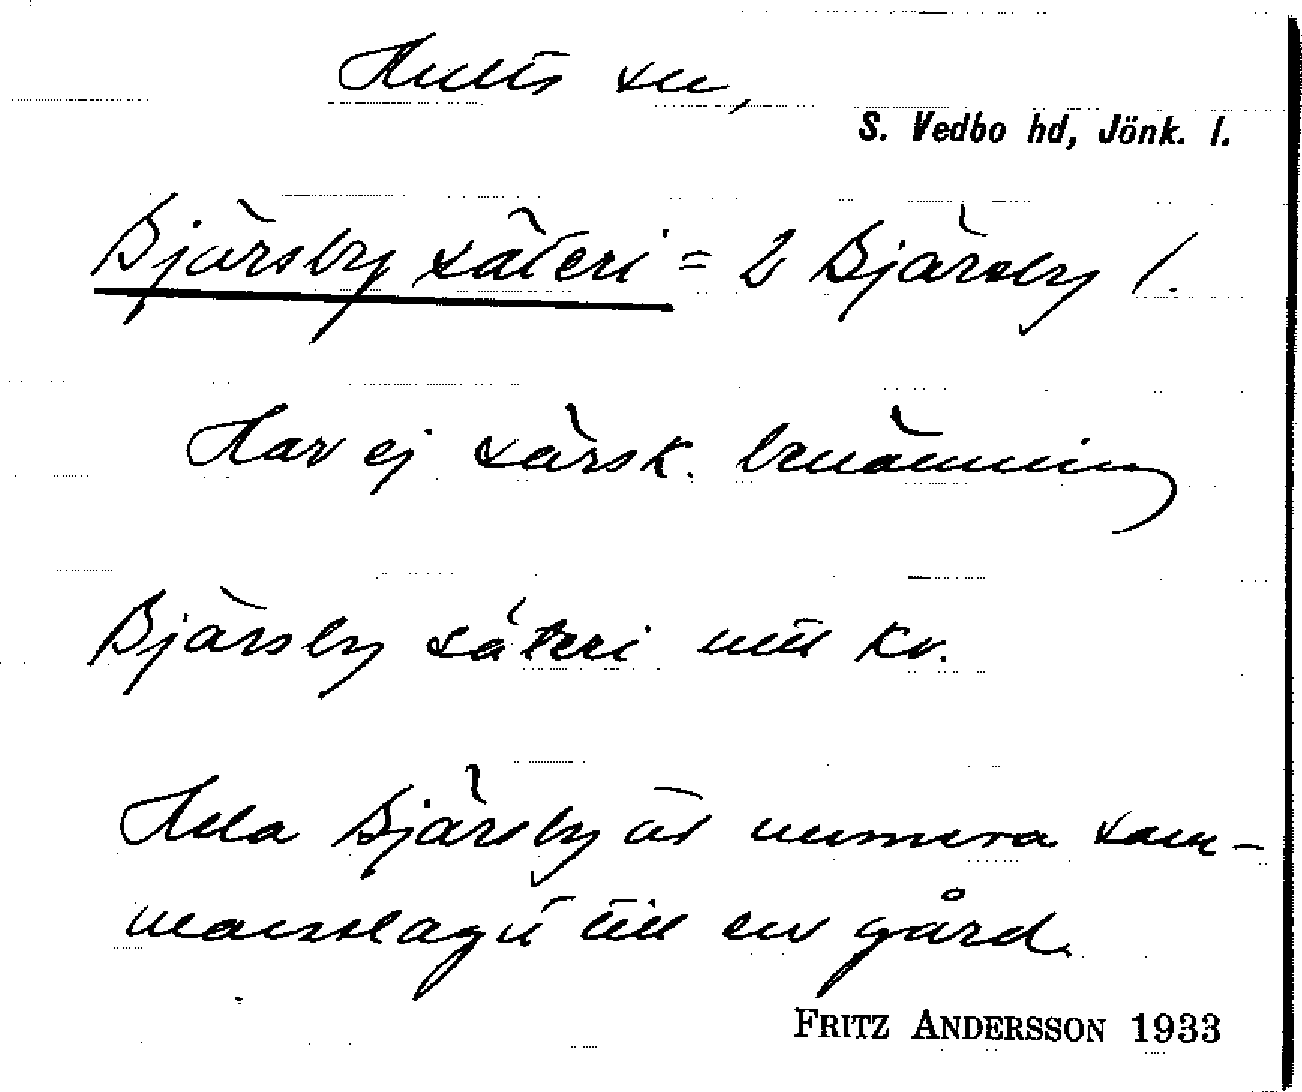 Hults sn,
S. Vedbo hd, Jönk. l.
Bjärsby säteri = 2 Bjärsby 1.
Har ej särsk. benämning
Bjärsby säteri utt Kv.
Hela Bjärsby är numera sam-
manslaget till en gård.
FRITZ ANDERSSON 1933